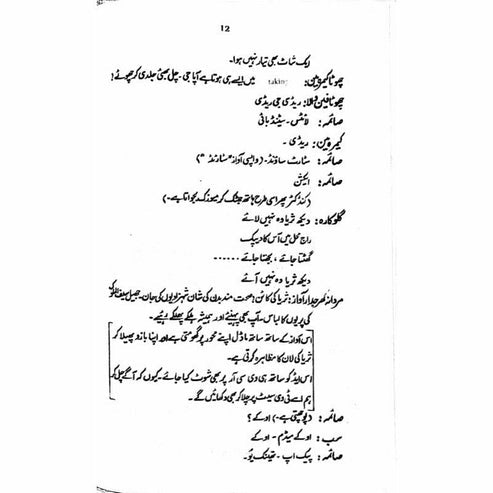 12
ایک شاٹ بھی تیار نہیں ہوا۔
چھوٹا کیمرہ مین: taking میں ایسے ہی ہوتا ہے آپا جی۔ چل بھئی جلدی کر چھوٹے!
چھوٹا فین والا: ریڈی جی ریڈی
صائمہ: لائٹس۔ سٹینڈ بائی
کیمرہ مین: ریڈی۔
صائمہ: سٹارٹ ساؤنڈ۔ (واپسی آواز "سٹارٹڈ")
صائمہ: ایکشن
(کنڈکٹر پھر اسی طرح ہاتھ جھٹک کر میوزک بجواتا ہے۔)
گلوکارہ: دیکھ ثریا وہ نہیں لائے
راج محل میں آس کا دیپک
گھٹتا جائے، بجھتا جائے ......
دیکھ ثریا وہ نہیں آئے
مردانہ بھر جدار آواز: ثریا کی کاٹن! صحت مند بدن کی شان شہزادیوں کی جان۔ جھیل سیف الملوک
کی پریوں کا لباس۔ آپ بھی پہنیئے اور ہمیشہ ہلکے پھلکے رہیئے۔
اس آواز کے ساتھ ساتھ ماڈل اپنے محور پر گھومتی ہے اور اپنا بازو پھیلا کر
ثریا کی لان کا مظاہرہ کرتی ہے۔
اس ایڈ کو ساتھ ہی وی سی آر پر بھی شوٹ کیا جائے۔ کیوں کہ آگے چل کر
ہم اسے ٹی وی سیٹ پر چلا کر بھی دکھائیں گے۔
صائمہ: (پوچھتی ہے۔) اوکے؟
سب: اوکے میڈم۔ اوکے
صائمہ: پیک اپ۔ تھینک یو۔